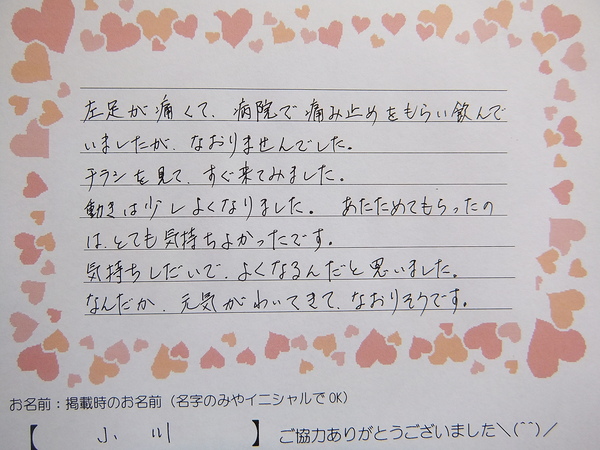 左足が痛くて、病院で痛み止めをもらい飲んで
いましたが、なおりませんでした。
チラシを見て、すぐ来てみました。
動きは少しよくなりました。 あたためてもらったの
は、とても気持ちよかったです。
気持ちしだいで、よくなるんだと思いました。
なんだか、元気がわいてきて、なおりそうです。
お名前:掲載時のお名前(名字のみやイニシャルでOK)
【 小川 】 ご協力ありがとうございました＼(^^)／